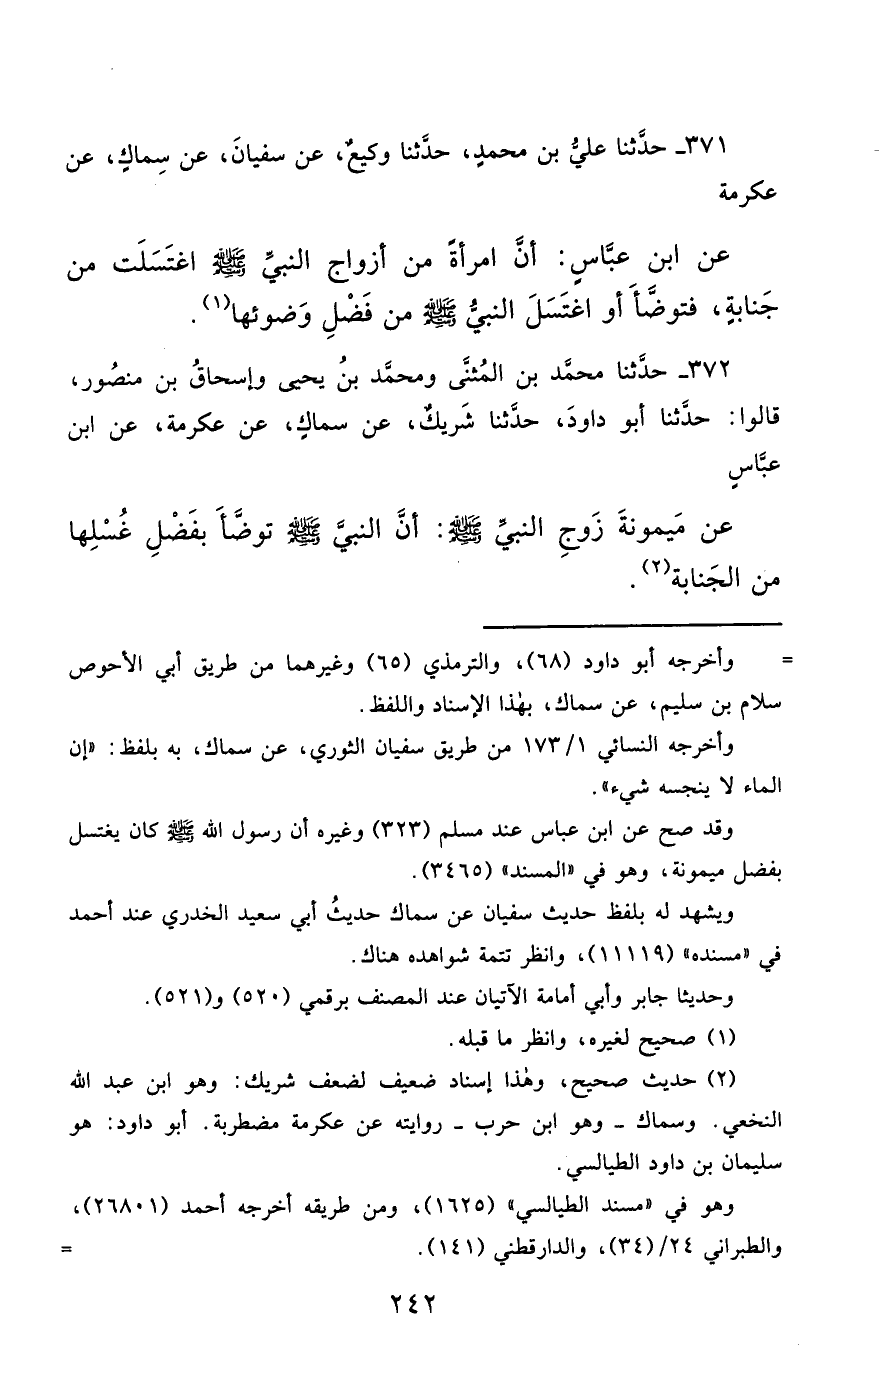 ٣٧١ـ حدَّثنا عليُّ بن محمدٍ، حدَّثنا وكيعٌ، عن سفيانَ، عن سِماكٍ، عن
عكرمة
عن ابن عبَّاسٍ: أنَّ امرأةً من أزواج النبيِّ ﷺ اغتَسَلَت من
جَنابةٍ، فتوضَّأَ أو اغتَسَلَ النبيُّ ﷺ من فَضْلِ وَضوئها(١).
٣٧٢ـ حدَّثنا محمَّد بن المُثنَّى ومحمَّد بنُ يحيى وإسحاقُ بن منصُور،
قالوا: حدَّثنا أبو داودَ، حدَّثنا شَريكٌ، عن سماكٍ، عن عكرمة، عن ابن
عبَّاسٍ
عن مَيمونةَ زَوجِ النبيِّ ﷺ: أنَّ النبيَّ ﷺ توضَّأَ بفَضْلِ غُسْلِها
من الجَنابة(٢).
= وأخرجه أبو داود (٦٨)، والترمذي (٦٥) وغيرهما من طريق أبي الأحوص
سلام بن سليم، عن سماك، بهٰذا الإسناد واللفظ.
وأخرجه النسائي ١/ ١٧٣ من طريق سفيان الثوري، عن سماك، به بلفظ: «إن
الماء لا ينجسه شيء».
وقد صح عن ابن عباس عند مسلم (٣٢٣) وغيره أن رسول الله ﷺ كان يغتسل
بفضل ميمونة، وهو في «المسند» (٣٤٦٥).
ويشهد له بلفظ حديث سفيان عن سماك حديثُ أبي سعيد الخدري عند أحمد
في «مسنده» (١١١١٩)، وانظر تتمة شواهده هناك.
وحديثا جابر وأبي أمامة الآتيان عند المصنف برقمي (٥٢٠) و(٥٢١).
(١) صحيح لغيره، وانظر ما قبله.
(٢) حديث صحيح، وهٰذا إسناد ضعيف لضعف شريك: وهو ابن عبد الله
النخعي. وسماك ـ وهو ابن حرب ـ روايته عن عكرمة مضطربة. أبو داود: هو
سليمان بن داود الطيالسي.
وهو في «مسند الطيالسي» (١٦٢٥)، ومن طريقه أخرجه أحمد (٢٦٨٠١)،
والطبراني ٢٤/ (٣٤)، والدارقطني (١٤١). =
٢٤٢